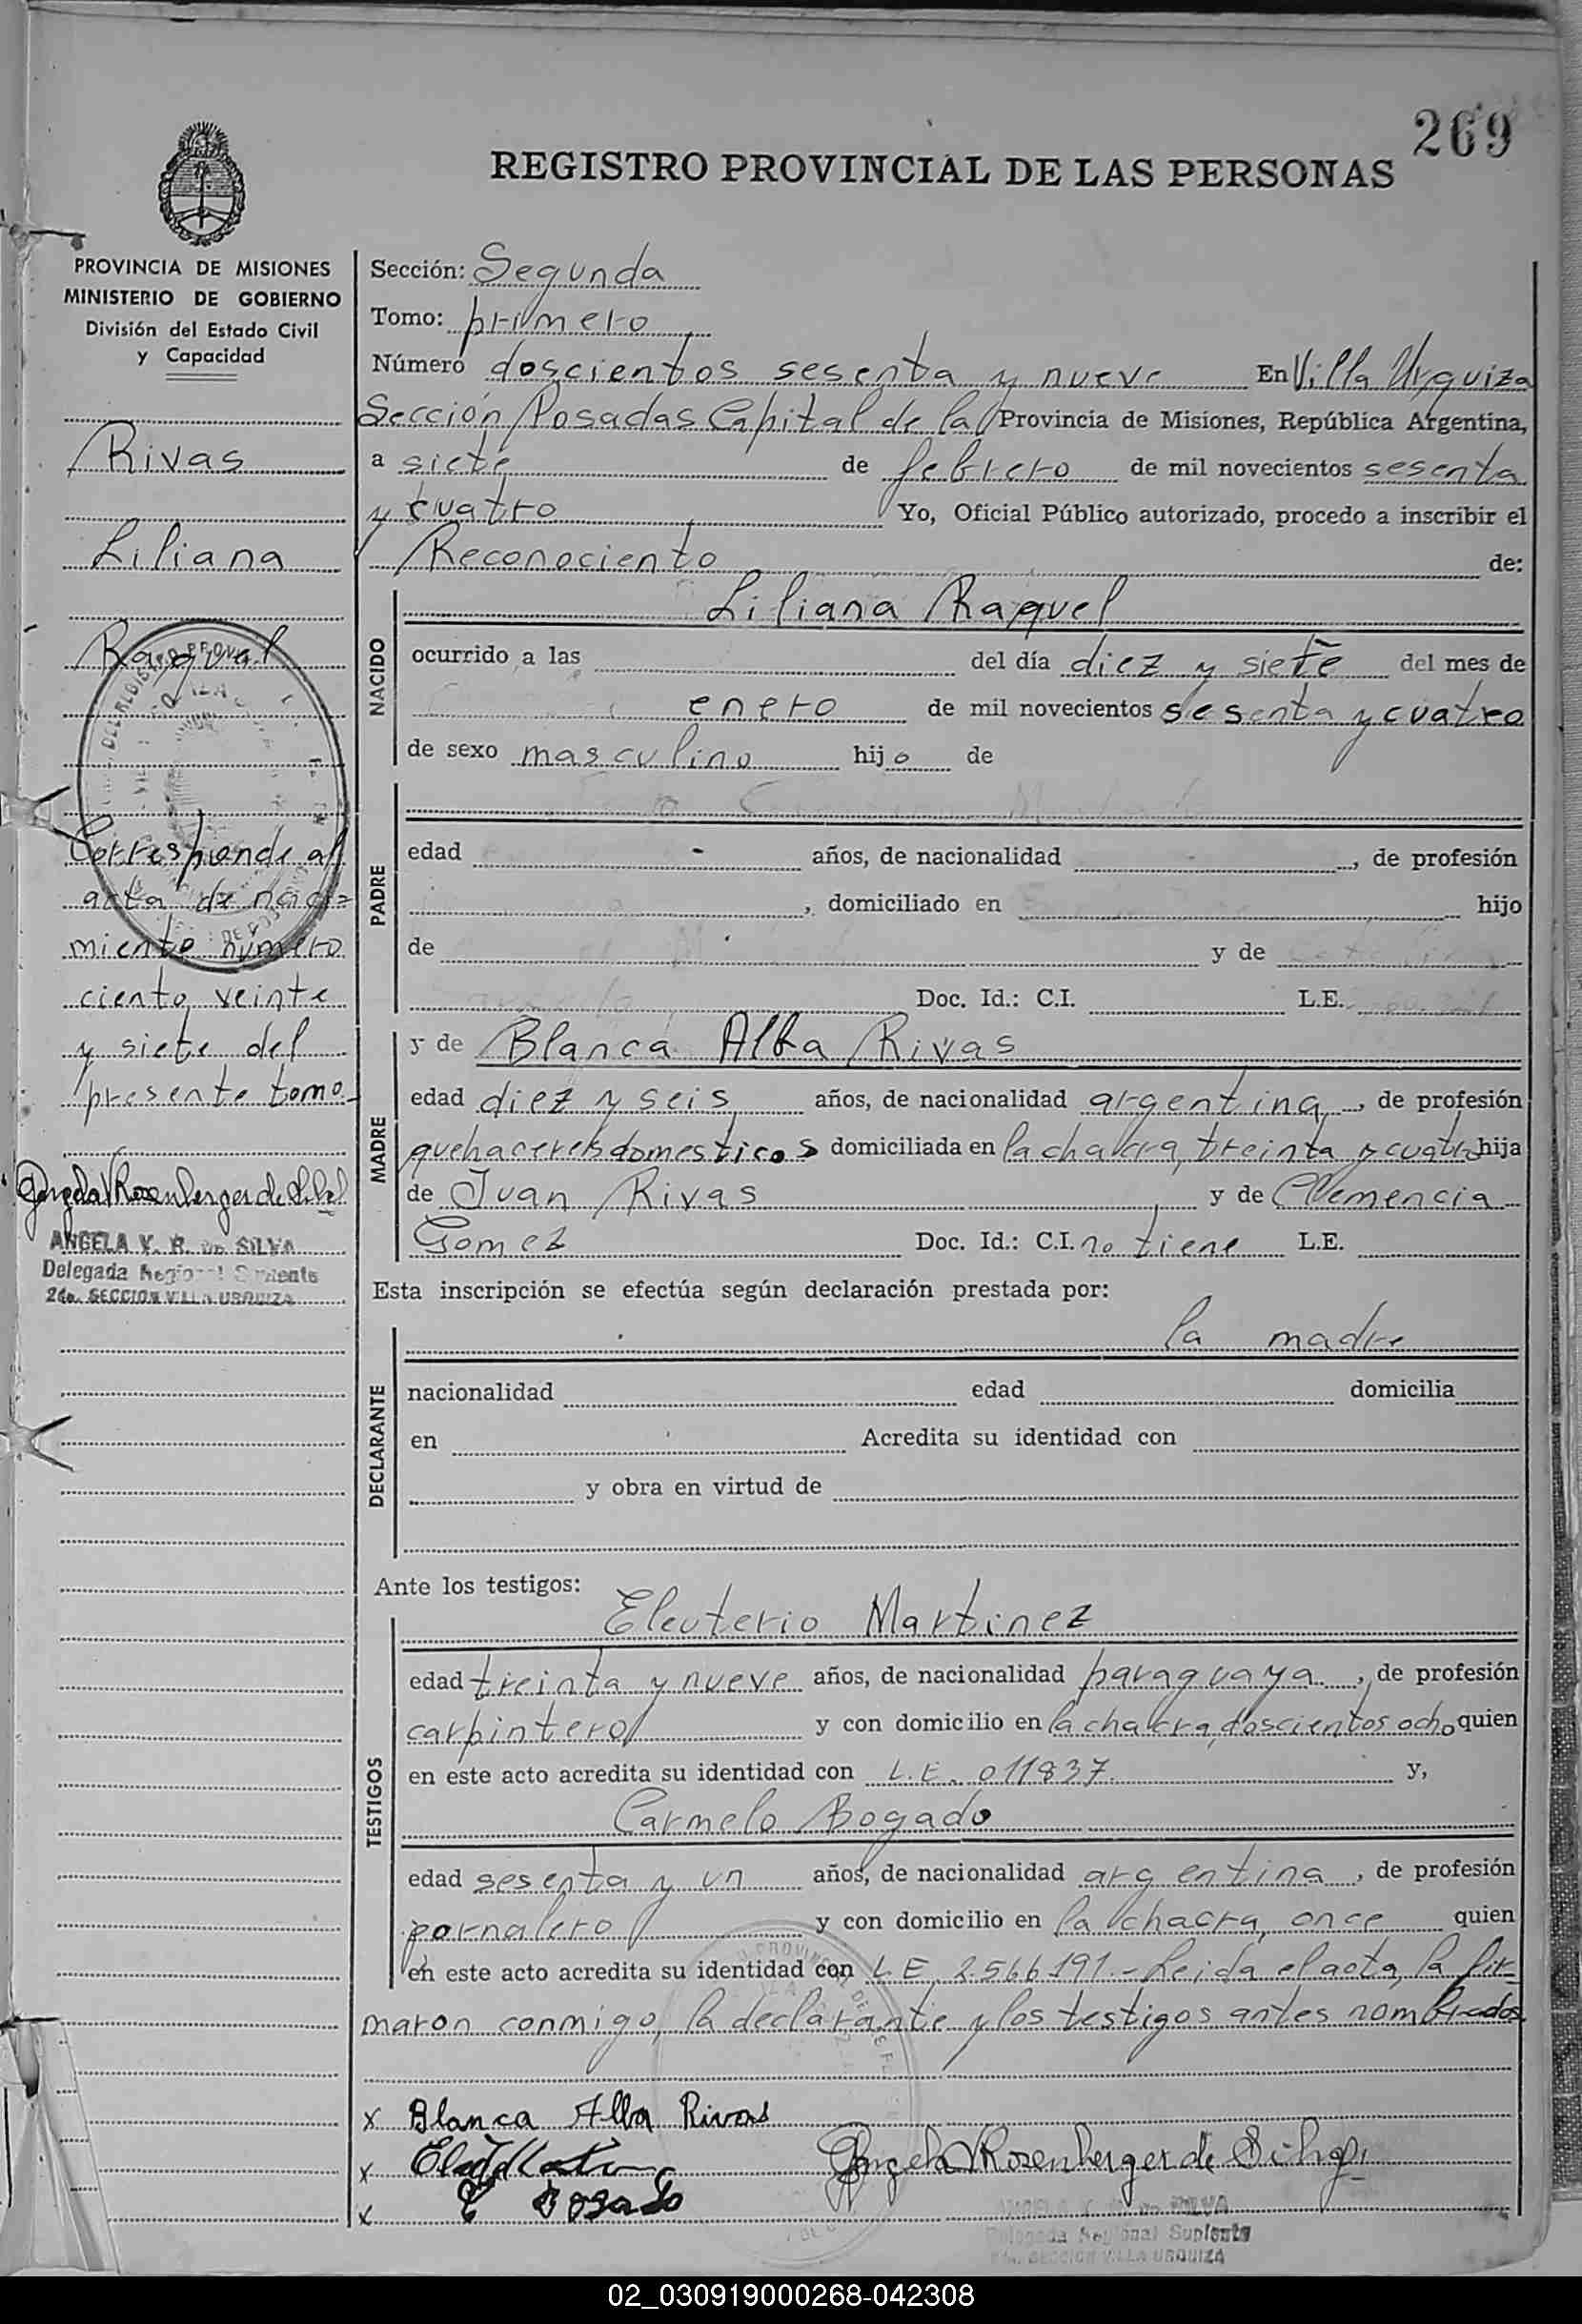 269
REGISTRO PROVINCIAL DE LAS PERSONAS
PROVINCIA DE MISIONES
MINISTERIO DE GOBIERNO
División del Estado Civil
y Capacidad
Rivas
Liliana
Raquel
Corresponde al
acta de naci=
miento número
ciento veinte
y siete del
presente tomo
Angela V Rosenberger de Silva
ANGELA V. R. DE SILVA
Delegada Regional Suplente
2da. SECCION VILLA URQUIZA
Sección: Segunda
Tomo: primero
Número doscientos sesenta y nueve En Villa Urquiza
Sección Posadas Capital de la Provincia de Misiones, República Argentina,
a siete de febrero de mil novecientos sesenta
y cuatro Yo, Oficial Público autorizado, procedo a inscribir el
Reconociento de:
NACIDO
Liliana Raquel
ocurrido a las del día diez y siete del mes de
enero de mil novecientos sesenta y cuatro
de sexo masculino hijo de
PADRE
edad años, de nacionalidad , de profesión
, domiciliado en hijo
de y de
Doc. Id.: C.I. L.E.
MADRE
y de Blanca Alba Rivas
edad diez y seis años, de nacionalidad argentina, de profesión
quehaceres domesticos domiciliada en la chacra, treinta y cuatro hija
de Juan Rivas y de Clemencia
Gomez Doc. Id.: C.I. no tiene L.E.
Esta inscripción se efectúa según declaración prestada por:
DECLARANTE
la madre
nacionalidad edad domicilia
en Acredita su identidad con
y obra en virtud de
Ante los testigos:
TESTIGOS
Eleuterio Martinez
edad treinta y nueve años, de nacionalidad paraguaya, de profesión
carpintero y con domicilio en la chacra, doscientos ocho quien
en este acto acredita su identidad con L.E. 011837 y,
Carmelo Bogado
edad sesenta y un años, de nacionalidad argentina, de profesión
jornalero y con domicilio en la chacra, once quien
en este acto acredita su identidad con L E 2.566.191.- Leida el acta, la fir-
maron conmigo, la declarante y los testigos antes nombrados
x Blanca Alba Rivas
x
x C Bogado
Angela V Rosenberger de Silva
ANGELA V. R. DE SILVA
Delegada Regional Suplente
2da. SECCION VILLA URQUIZA
02_030919000268-042308